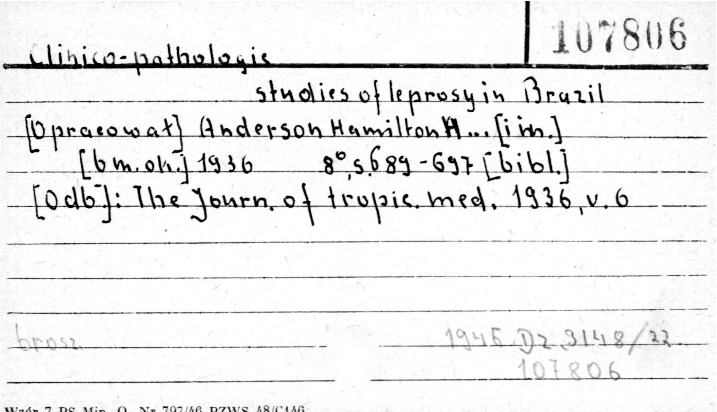 107806
Clinico-pathologic
studies of leprosy in Brazil
[Opracował] (Anderson Hamilton H... [i in.]
[b m. ok.] 1936 8°, s. 689-697 [bibl.]
[Odb]: The Journ. of tropic. med. 1936, v. 6
brosz 1945. Dz. 3148/22
107806
Wzór 7 PS Min. O. Nr 797/46 PZWS 48/C146